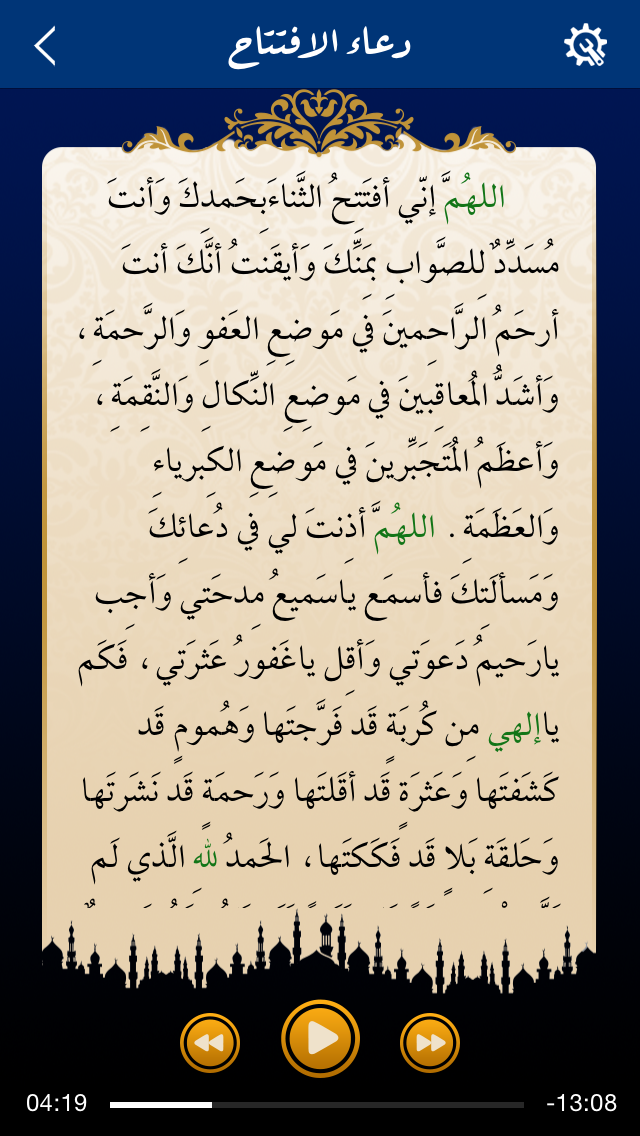 دعاء الافتتاح
اللهُمَّ إنّي أفتَتِحُ الثَّناءَبِحَمدِكَ وَأنتَ
مُسَدِّدٌ لِلصَّوابِ بِمَنِّكَ وَأيقَنتُ أنَّكَ أنتَ
أرحَمُ الرَّاحِمينَ في مَوضِعِ العَفوِ وَالرَّحمَةِ ،
وَأشَدُّ المُعاقِبينَ في مَوضِعِ النِّكالِ وَالنَّقِمَةِ ،
وَأعظَمُ المُتَجَبِّرينَ في مَوضِعِ الكِبرياءِ
وَالعَظَمَةِ . اللهُمَّ أذِنتَ لي في دُعائِكَ
وَمَسألَتِكَ فأسمَع ياسَميعُ مِدحَتي وَأجِب
يارَحيمُ دَعوَتي وَأقِل ياغَفورُ عَثرَتي ، فَكَم
ياإلهي مِن كُربَةٍ قَد فَرَّجتَها وَهُمومٍ قَد
كَشَفتَها وَعَثرَةٍ قَد أقَلتَها وَرَحمَةٍ قَد نَشَرتَها
وَحَلقَةِ بَلاٍ قَد فَكَكتَها ، الحَمدُ للهِ الَّذي لَم
04:19 -13:08